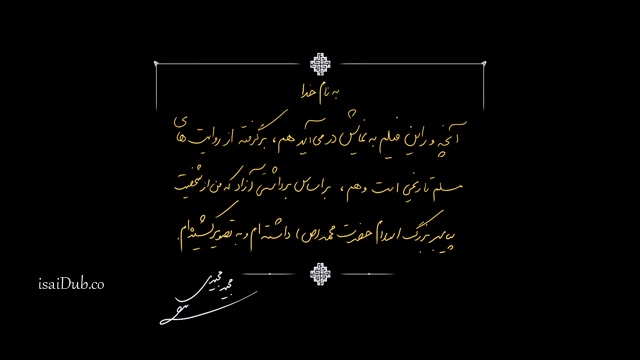 به نام خدا
آنچه در این فیلم به نمایش در می‌آید هم، برگرفته از روایت های
مسلم تاریخی است و هم، براساس برداشتی آزاد که من از شخصیت
پیامبر بزرگ اسلام حضرت محمد (ص) داشته ام و به تصویر کشیده ام.
مجید مجیدی
isaiDub.co